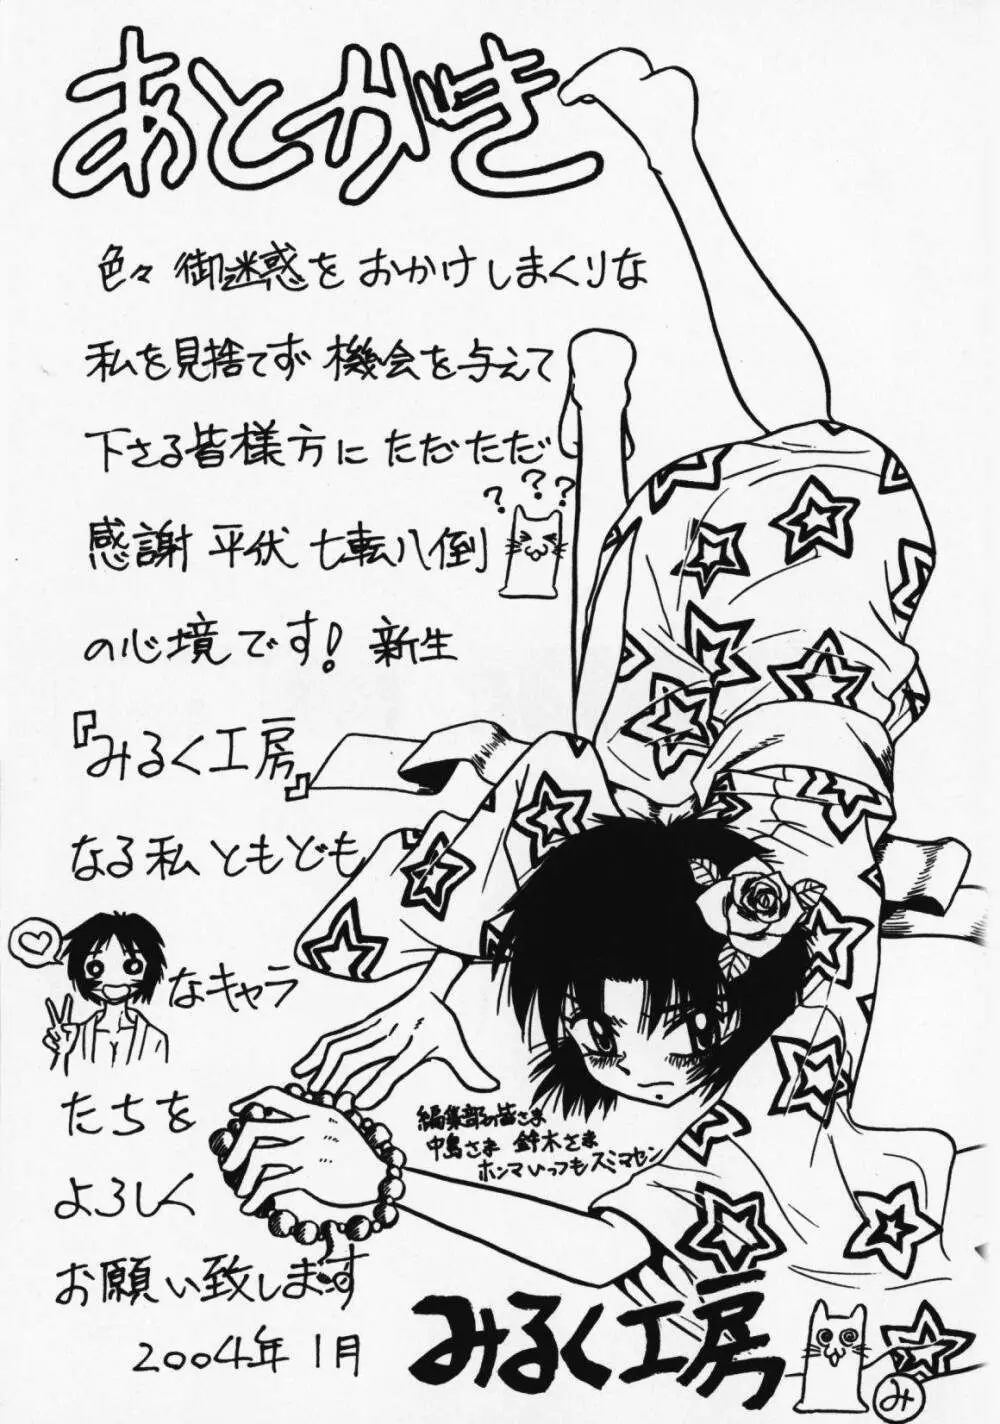 あとがき
色々御迷惑をおかけしまくりな
私を見捨てず機会を与えて
下さる皆様方にただただ
感謝 平伏 七転八倒
???
の心境です! 新生
『みるく工房』
なる私ともども
♡
なキャラ
たちを
よろしく
お願い致します
2004年1月
編集部の皆さま
中島さま 鈴木さま
ホンマいつもスミマセン
みるく工房
み